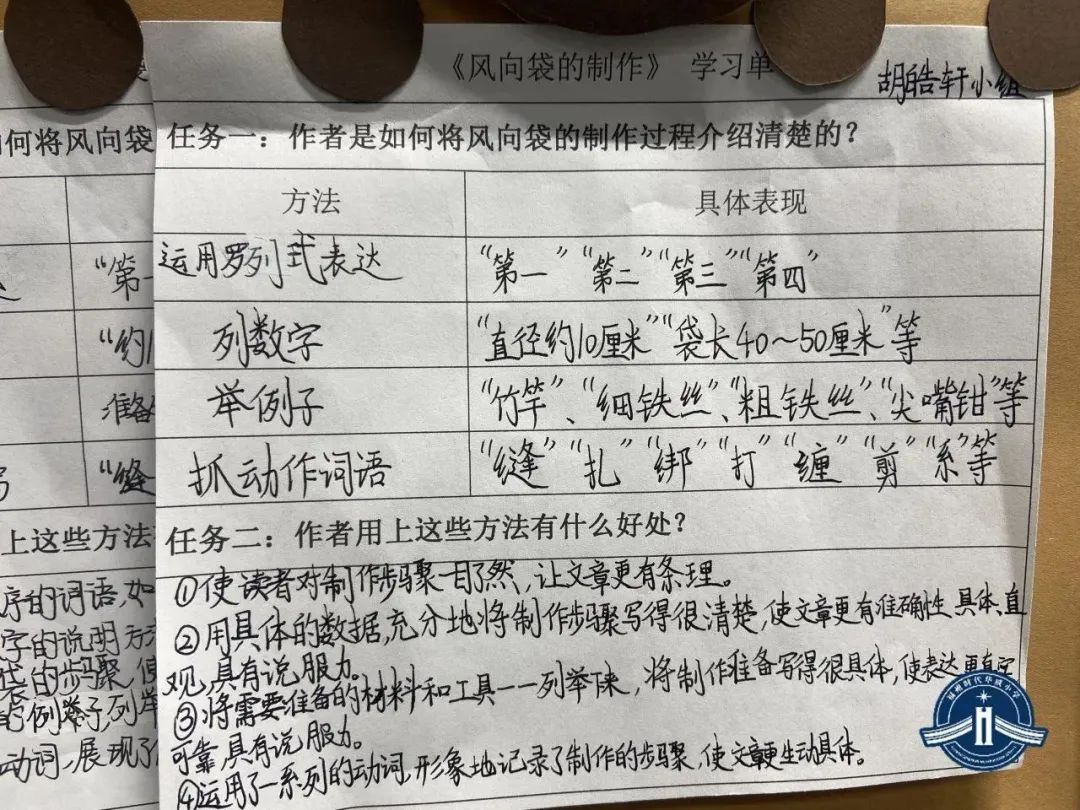 《风向袋的制作》 学习单
胡皓轩小组
任务一：作者是如何将风向袋的制作过程介绍清楚的？
方法 具体表现
运用罗列式表达 “第一”“第二”“第三”“第四”
列数字 “直径约10厘米”“袋长40～50厘米”等
举例子 “竹竿”、“细铁丝”、“粗铁丝”、“尖嘴钳”等
抓动作词语 “缝”“扎”“绑”“打”“缠”“剪”“系”等
任务二：作者用上这些方法有什么好处？
①使读者对制作步骤一目了然，让文章更有条理。
②用具体的数据，充分地将制作步骤写得很清楚，使文章更有准确性、具体、直
观，具有说服力。
③将需要准备的材料和工具一一列举下来，将制作准备写得很具体，使表达更有
可靠，具有说服力。
④运用了一系列的动词，形象地记录了制作的步骤，使文章更生动具体。
何将风向袋
“第一
“约1
准备
“缝
上这些方法
序的词语，如
字的说明方
袋的步骤，使
例举子，列举
动词，展现了
福州时代华威小学